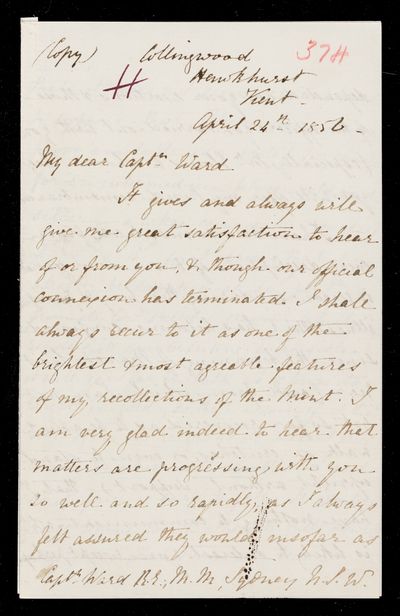 (Copy) Collingwood 37H
H Hawkhurst
Kent.
April 24th 1856.
My dear Captn Ward
It gives and always will
give me great satisfaction to hear
of or from you, & though our official
connexion has terminated I shall
always recur to it as one of the
brightest & most agreable features
of my recollections of the Mint. I
am very glad indeed to hear that
matters are progressing with you
so well and so rapidly, as I always
felt assured they would insofar as
Captn Ward R.E., M.M, Sydney N.S.W.